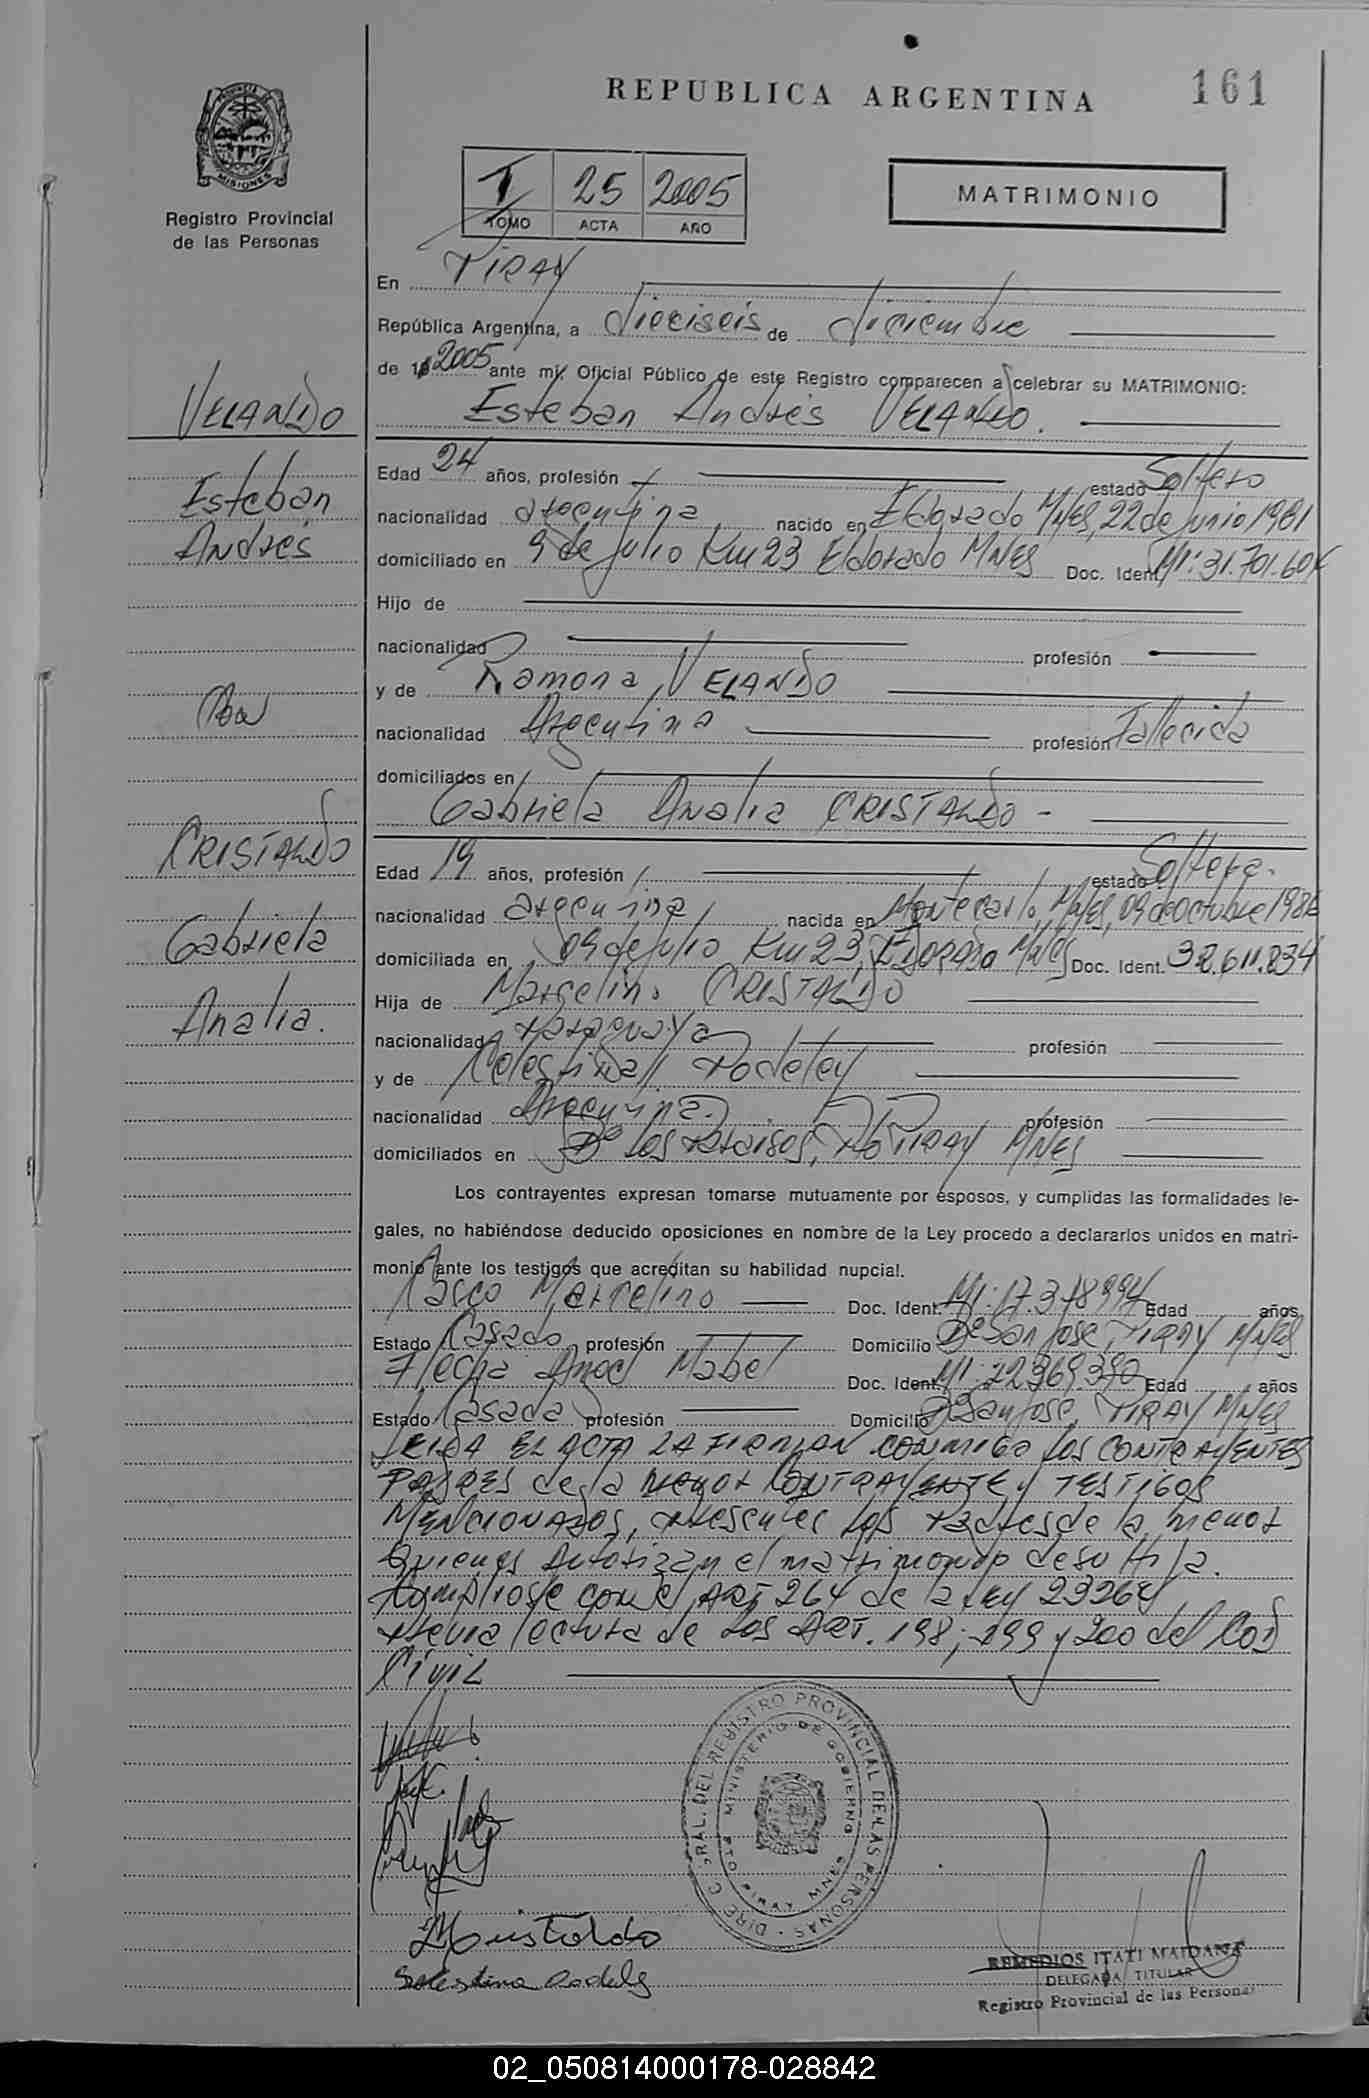 REPUBLICA ARGENTINA
161
MISIONES
Registro Provincial
de las Personas
T 25 2005
TOMO ACTA AÑO
MATRIMONIO
En PIRAY
República Argentina, a dieciseis de diciembre
de 19 2005 ante mí, Oficial Público de este Registro comparecen a celebrar su MATRIMONIO:
VELANDO
Esteban Andrés VELANDO.
Edad 24 años, profesión estado Soltero
Esteban
nacionalidad argentina nacido en Eldorado Mnes, 22 de Junio 1981
Andrés
domiciliado en 9 de Julio Km 23 Eldorado Mnes Doc. Ident. MI: 31.701.60
Hijo de
nacionalidad profesión
y de Ramona VELANDO
Con
nacionalidad Argentina profesión Fallecida
domiciliados en
Gabriela Analia CRISTALDO -
CRISTALDO
Edad 19 años, profesión estado Soltera.
nacionalidad argentina nacida en Montecarlo, Mnes, 09 de octubre 1986
Gabriela
domiciliada en 09 de Julio Km 23, ELDORADO Mnes Doc. Ident. 32.611.834
Hija de Marcelino CRISTALDO
Analia.
nacionalidad Paraguaya profesión
y de Celestina Rodeley
nacionalidad Argentina. profesión
domiciliados en Bº Los Paraisos, Pto PIRAY MNES
Los contrayentes expresan tomarse mutuamente por esposos, y cumplidas las formalidades le-
gales, no habiéndose deducido oposiciones en nombre de la Ley procedo a declararlos unidos en matri-
monio ante los testigos que acreditan su habilidad nupcial.
Marcelino Doc. Ident. MI: 17.378994 Edad años
Estado Casado profesión Domicilio Bº San Jose, PIRAY MNES
Flecha Mabel Doc. Ident. MI: 22369.390 Edad años
Estado Casada profesión Domicilio Bº San Jose, PIRAY MNES
LEIDA EL ACTA LA FIRMAN CONMIGO LOS CONTRAYENTES
PADRES de la menor CONTRAYENTE y TESTIGOS
MENCIONADOS, presentes los padres de la menor
Quienes Autorizan el matrimonio de su Hija.
Cumpliose con el ART 264 de la Ley 23264
previa lectura de los ART. 198, 199 y 200 del Cod
Civil
DIREC. GRAL. DEL REGISTRO PROVINCIAL DE LAS PERSONAS
MINISTERIO DE GOBIERNO
PTO PIRAY MNES
Cristaldo
REMEDIOS ITATI MAIDANA
DELEGADA TITULAR
Registro Provincial de las Personas
02_050814000178-028842